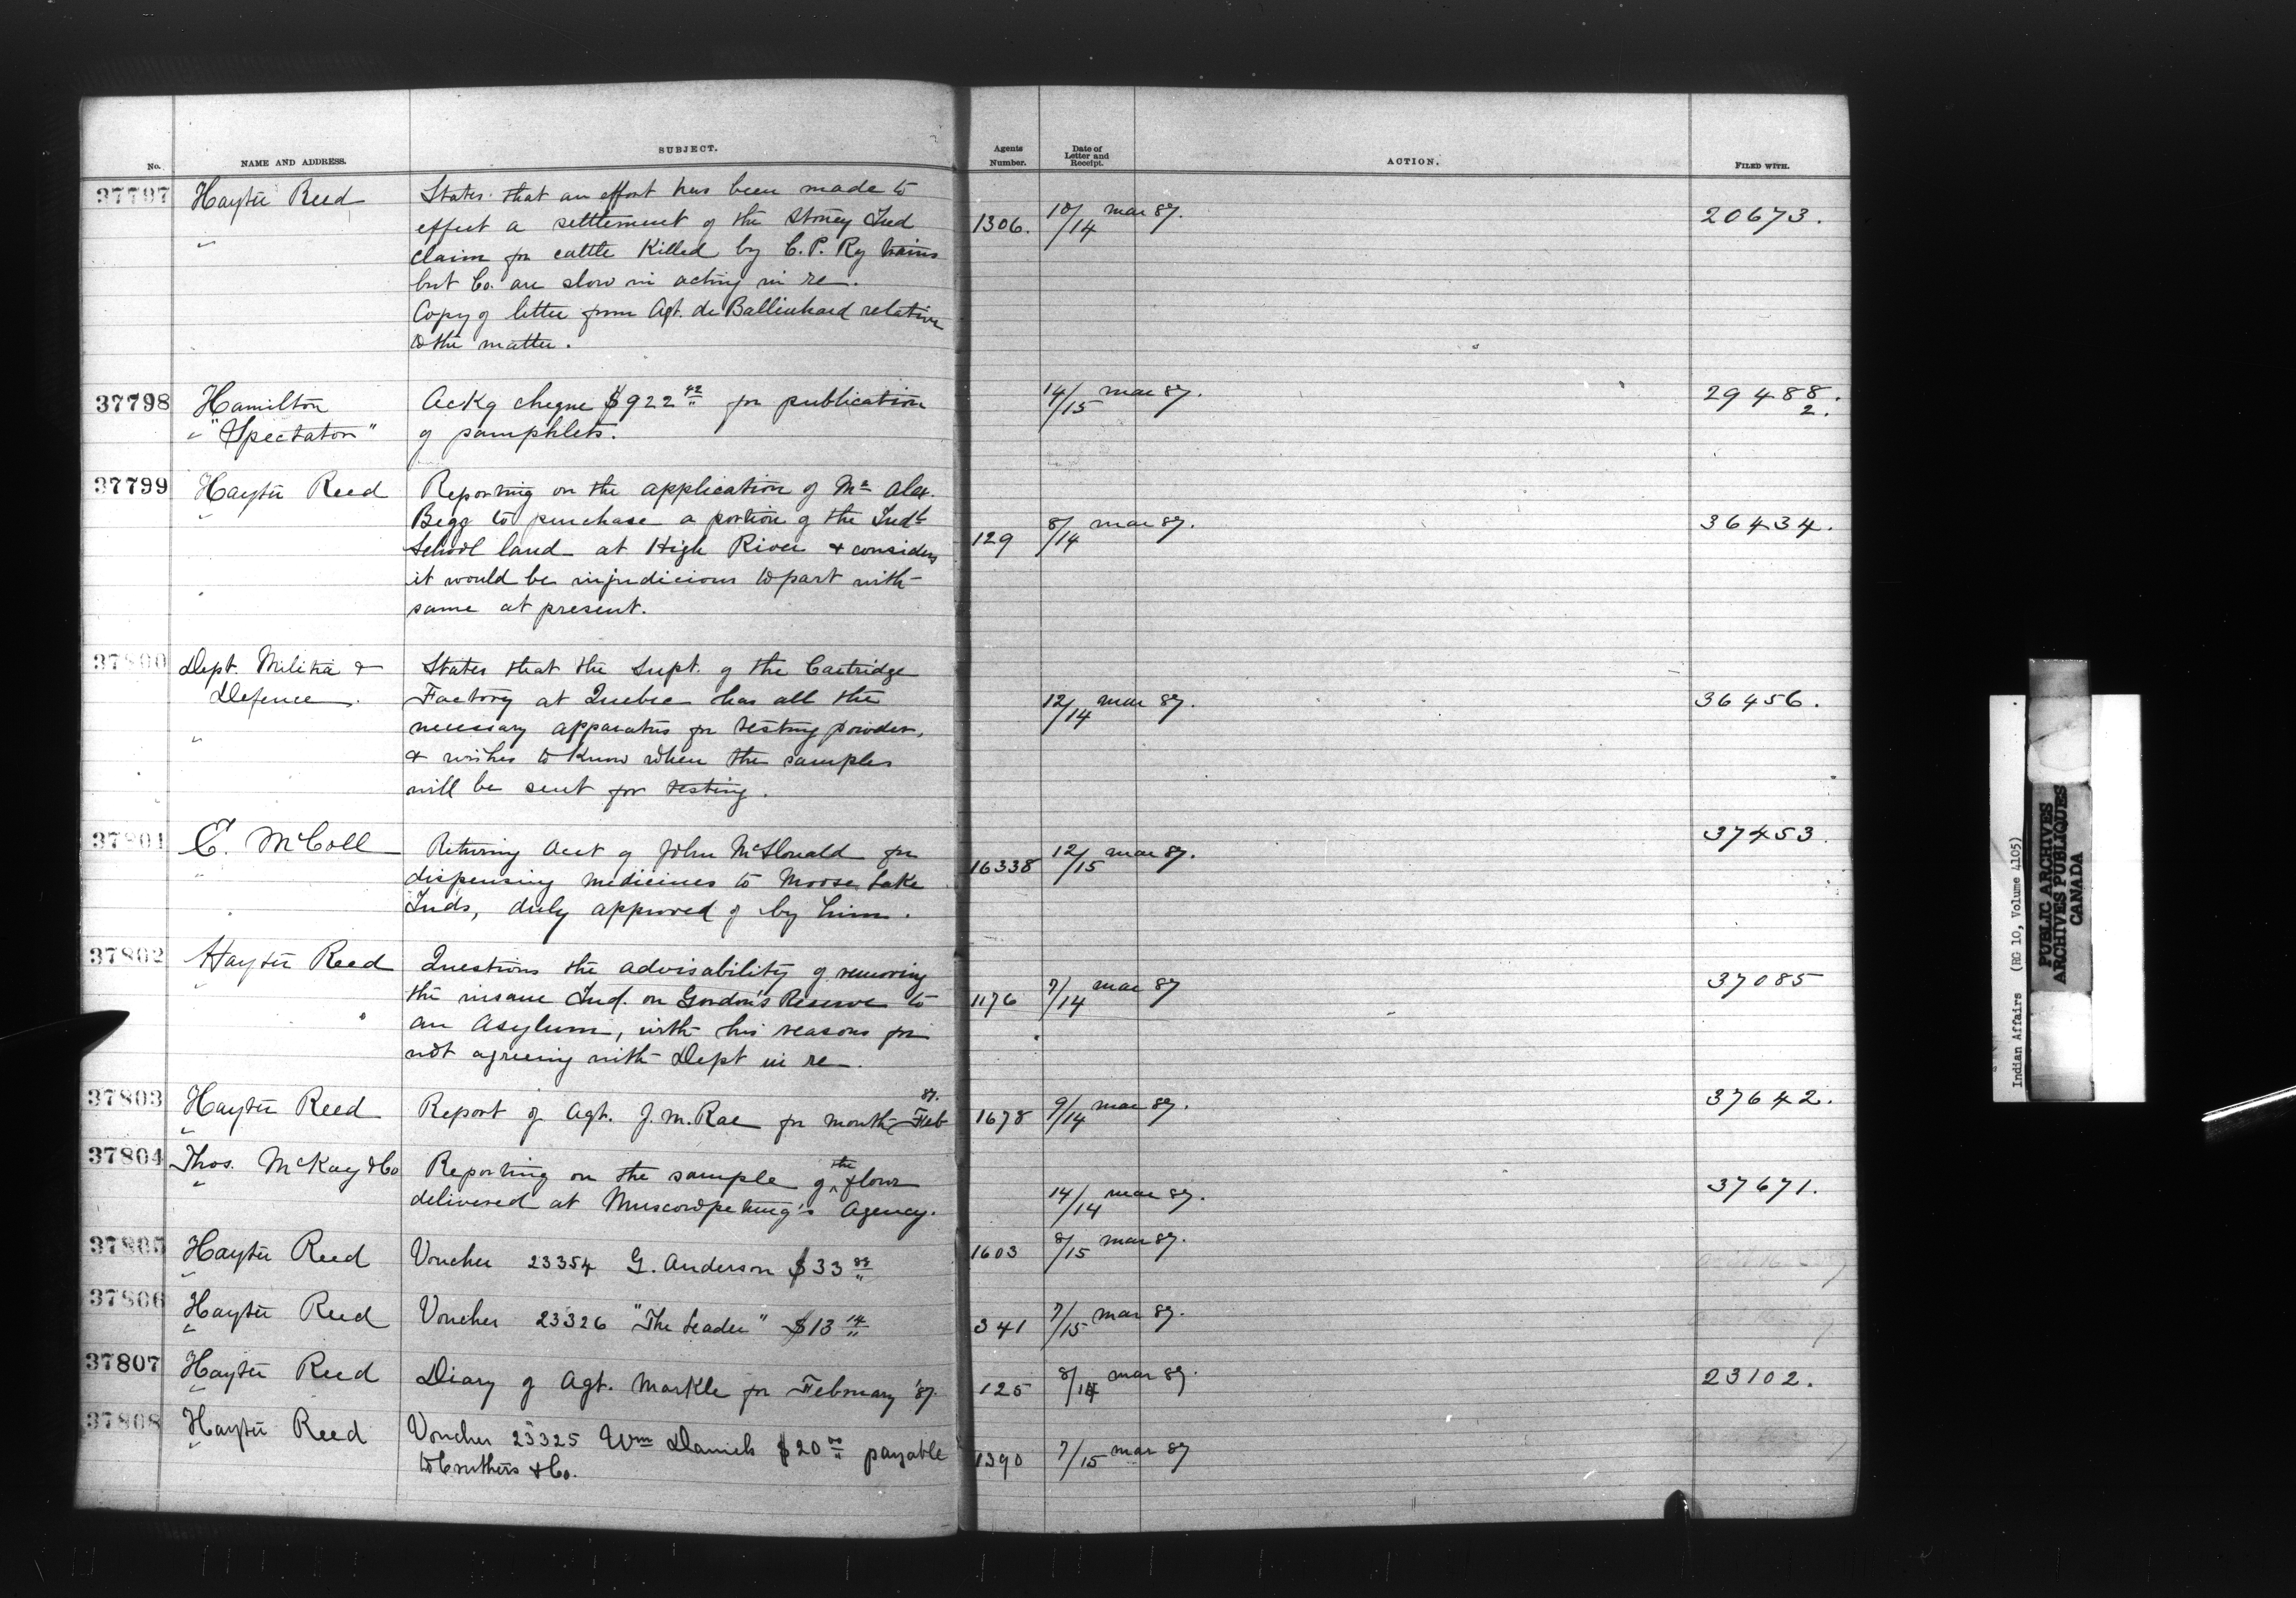 No.
NAME AND ADDRESS.
SUBJECT.
Agents
Number.
Date of
Letter and
Receipt.
ACTION.
FILED WITH.
37797 Hayter Reed States that an effort has been made to
effect a settlement of the Stoney Ind
claim for cattle Killed by C. P. Ry trains
but Co. are slow in acting in re.
Copy of letter from Agt. de Ballinhard relative
to the matter.
1306. 10/14 mar 87. 20673.
37798 Hamilton Ackg cheque $922 42 for publication
"Spectator" of pamphlets.
14/15 mar 87. 29488.
2.
37799 Hayter Reed Reporting on the application of Mr Alex.
Begg to purchase a portion of the Indl
School land at High River & considers
it would be injudicious to part with
same at present.
129 8/14 mar 87. 36434.
37800 Dept. Militia & States that the Supt. of the Cartridge
Defence. Factory at Quebec has all the
necessary apparatus for testing powder,
& wishes to know when the samples
will be sent for testing.
12/14 mar 87. 36456.
37801 E. McColl Returning Acct of John McDonald for
dispensing medicines to Moose Lake
Inds, duly approved of by him.
16338 12/15 mar 87. 37453.
37802 Hayter Reed Questions the advisability of removing
the insane Ind. on Gordon's Reserve to
an Asylum, with his reasons for
not agreeing with Dept in re.
1176 7/14 mar 87 37085
37803 Hayter Reed Report of Agt. J. M. Rae for month Feb 87.
1678 9/14 mar 87. 37642.
37804 Thos. McKay & Co Reporting on the sample of the flour
delivered at Muscowpetung's Agency.
14/14 mar 87. 37671.
37805 Hayter Reed Voucher 23354 G. Anderson $33
1603 8/15 mar 87.
37806 Hayter Reed Voucher 23326 "The Leader" $13 14
341 7/15 mar 87.
37807 Hayter Reed Diary of Agt. Markle for February '87.
125 8/14 mar 87. 23102.
37808 Hayter Reed Voucher 23325 Wm Daniels $20 00 payable
to Cruthers & Co.
1390 7/15 mar 87
Indian Affairs (RG 10, Volume 4105)
PUBLIC ARCHIVES
ARCHIVES PUBLIQUES
CANADA